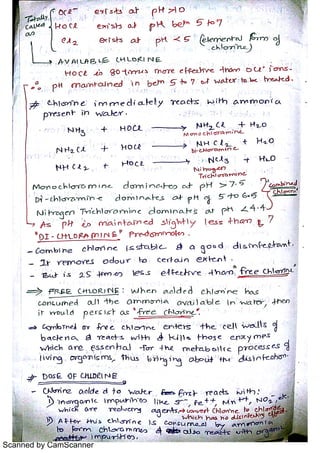 Totally called as
OCl⁻ exists at pH > 10
HOCl exists at pH betn 5 to 7
Cl₂ exists at pH < 5 (elemental form of chlorine)
→ AVAILABLE CHLORINE
HOCl is 80 times more effective than OCl⁻ ions.
∴ pH maintained in betn 5 to 7 of water to be treated.
# Chlorine immediately reacts with ammonia
present in water.
NH₃ + HOCl → NH₂Cl + H₂O
Monochloramine
NH₂Cl + HOCl → NHCl₂ + H₂O
Dichloramine
NHCl₂ + HOCl → NCl₃ + H₂O
Nitrogen Trichloramine
Monochloromine dominates at pH > 7.5
Di-chloramine dominates at pH of 5 to 6.5
Nitrogen Trichloromine dominates at pH < 4.4
"Combined Chlorine"
→ As pH is maintained slightly less than 7
"DI-CHLORAMINE" Predominates.
- Combine chlorine is stable & a good disinfectant.
- It removes odour to certain extent.
- But is 25 times less effective than "free chlorine"
⇒ FREE CHLORINE: When added chlorine has
consumed all the ammonia available in water, then
it would persist as "free chlorine".
⇒ Combined or free chlorine enters the cell walls of
bacteria, & reacts with & kills those enzymes
which are essential for the metabolic processes of
living organisms, thus bringing about the disinfection.
# DOSE OF CHLORINE
- Chlorine added to water first reacts with:
1) Inorganic impurities like S⁻, Fe⁺⁺, Mn⁺⁺, NO₂⁻, etc.
which are reducing agents → convert chlorine to chloride,
which has no disinfecting effect
2) After this chlorine is consumed by ammonia
to form chloramines & also reacts with organic
impurities.
Scanned by CamScanner